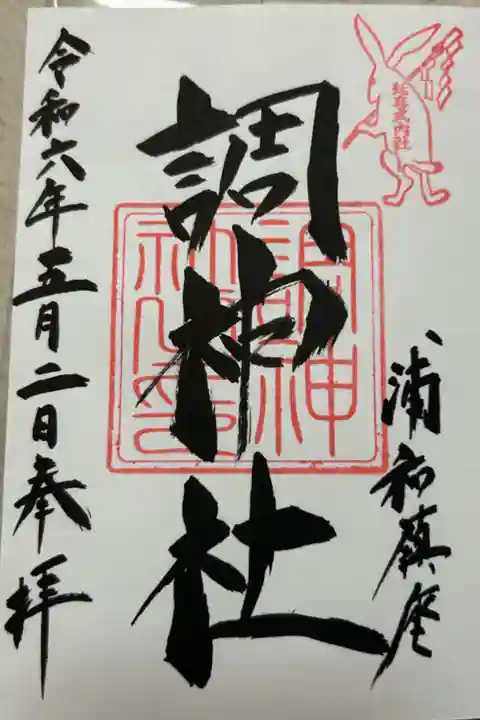 延喜式内社
浦和鎮座
調神社
調神社之印
令和六年五月二日奉拝